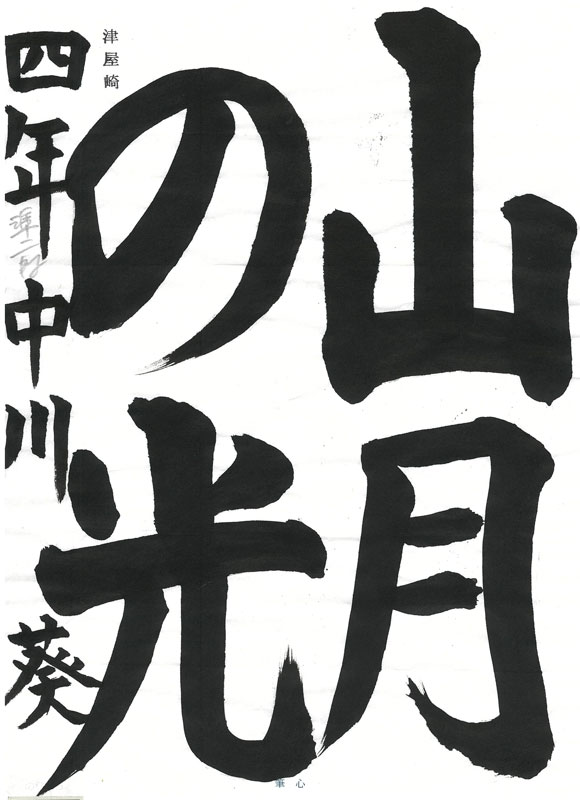 山月
の光
津屋崎
四年 中川 葵
準二段
筆心